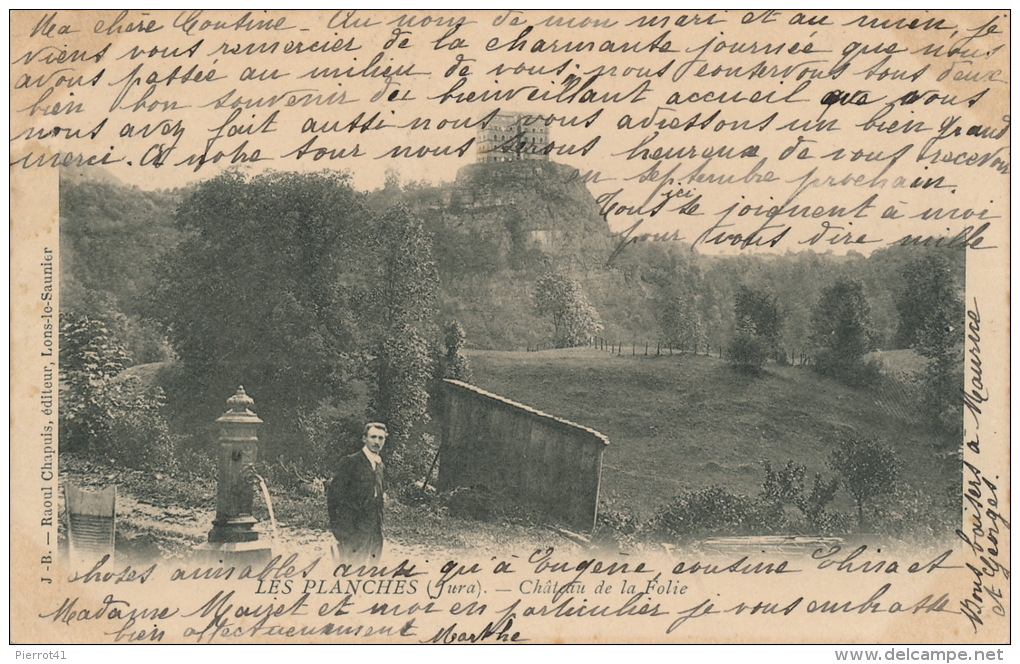 Ma chère Cousine – Au nom de mon mari et au mien, je
viens vous remercier de la charmante journée que nous
avons passée au milieu de vous; nous conservons tous deux
bien bon souvenir du bienveillant accueil que vous
nous avez fait aussi nous vous adressons un bien grand
merci. A notre tour nous serons heureux de vous recevoir
en septembre prochain.
Tous ici se joignent à moi
pour vous dire mille
choses aimables ainsi qu'à Eugène, cousine Elisa et
LES PLANCHES (Jura). — Château de la Folie
Madame Mayet et moi en particulier je vous embrasse
bien affectueusement Marthe
Bons baisers à Maurice
et Georges.
J.-B. — Raoul Chapuis, éditeur, Lons-le-Saunier
Pierrot41
www.delcampe.net